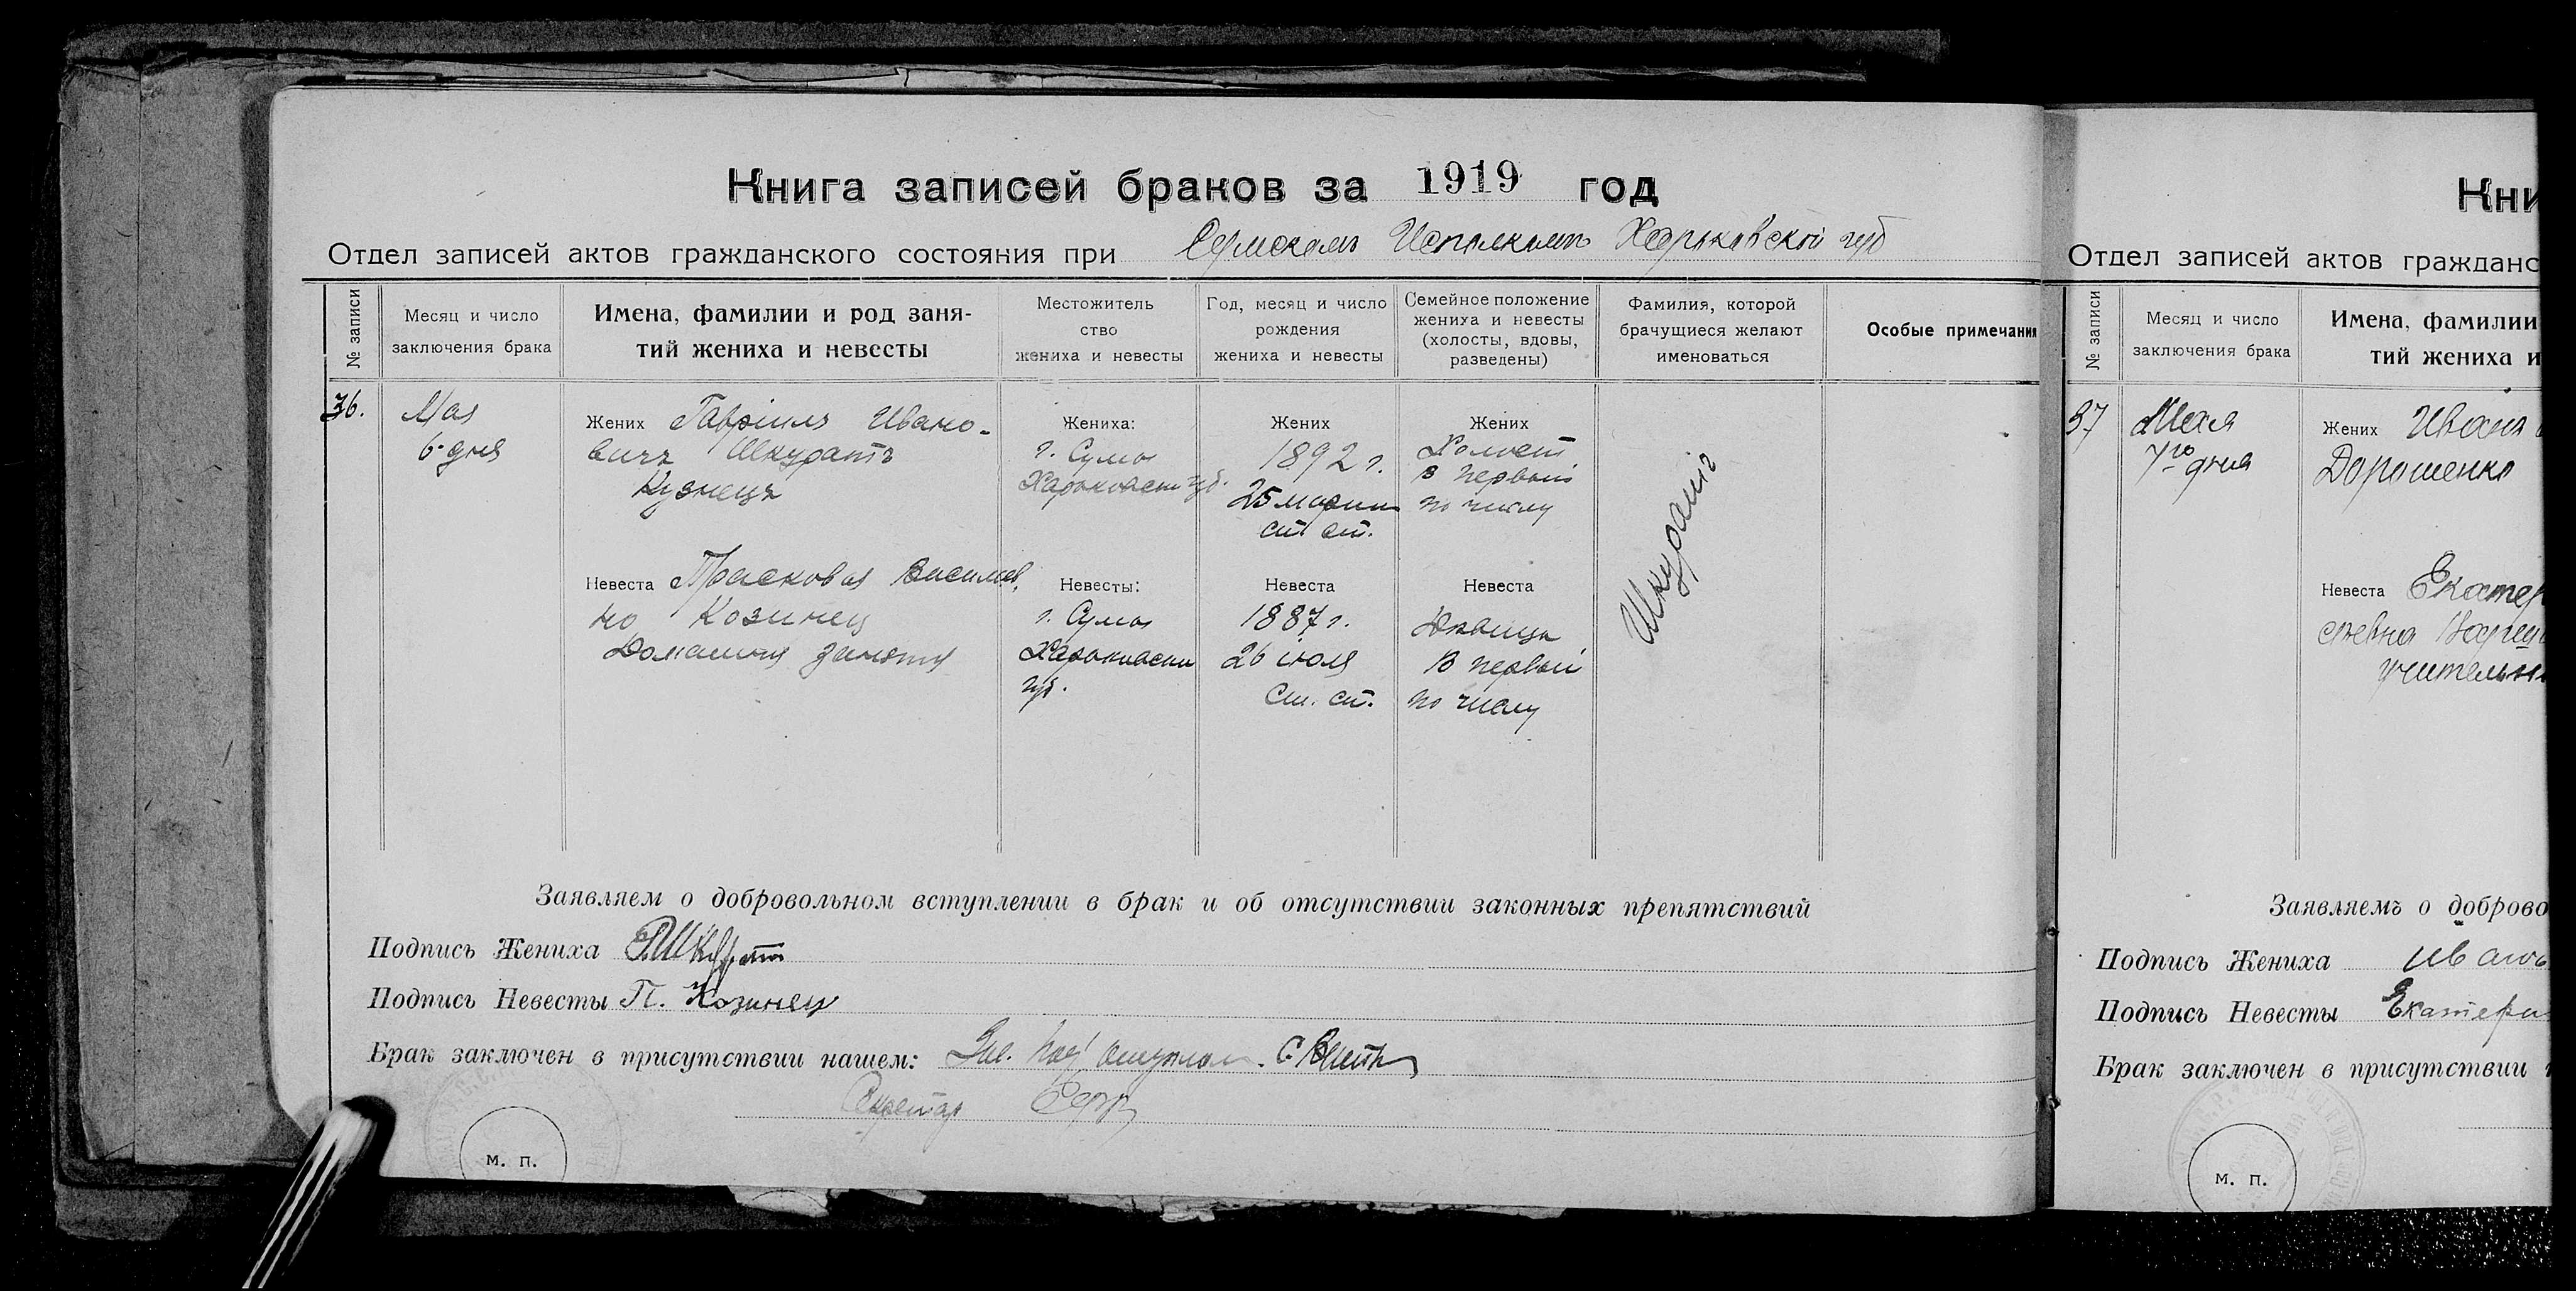 Книга записей браков за 1919 год
Отдел записей актов гражданского состояния при Сумскомъ Исполкомъ Харьковской губ
№ записи
Месяц и число
заключения брака
Имена, фамилии и род заня-
тий жениха и невесты
Местожитель
ство
жениха и невесты
Год, месяц и число
рождения
жениха и невесты
Семейное положение
жениха и невесты
(холосты, вдовы,
разведены)
Фамилия, которой
брачущиеся желают
именоваться
Особые примечания
36.
Мая
6. дня
Жених Гавріилъ Ивано-
вичъ Шкуратъ
Кузнецъ
Невеста Прасковья Василев.
но Козинец
Домашния занятия
Жениха:
г. Сумы
Харьковской губ.
Невесты:
г. Сумы
Харьковской
губ.
Жених
1892 г.
25 марта
ст. ст.
Невеста
1887 г.
26 июля
ст. ст.
Жених
Холост
в первый
по числу
Невеста
Девица
в первый
по числу
Шкуратъ
Заявляем о добровольном вступлении в брак и об отсутствии законных препятствий
Подпись Жениха Г.Шкурат
Подпись Невесты П. Козинец
Брак заключен в присутствии нашем: Зав.
Секретар
м. п.
Кни
Отдел записей актов гражданс
№ записи
Месяц и число
заключения брака
Имена, фамилии
тий жениха и
37
Мая
7го дня
Жених Иванъ
Дорошенко
Невеста Екатер
учительн
Заявляемъ о доброво
Подпись Жениха Иванъ
Подпись Невесты Екатери
Брак заключен в присутствии
м. п.